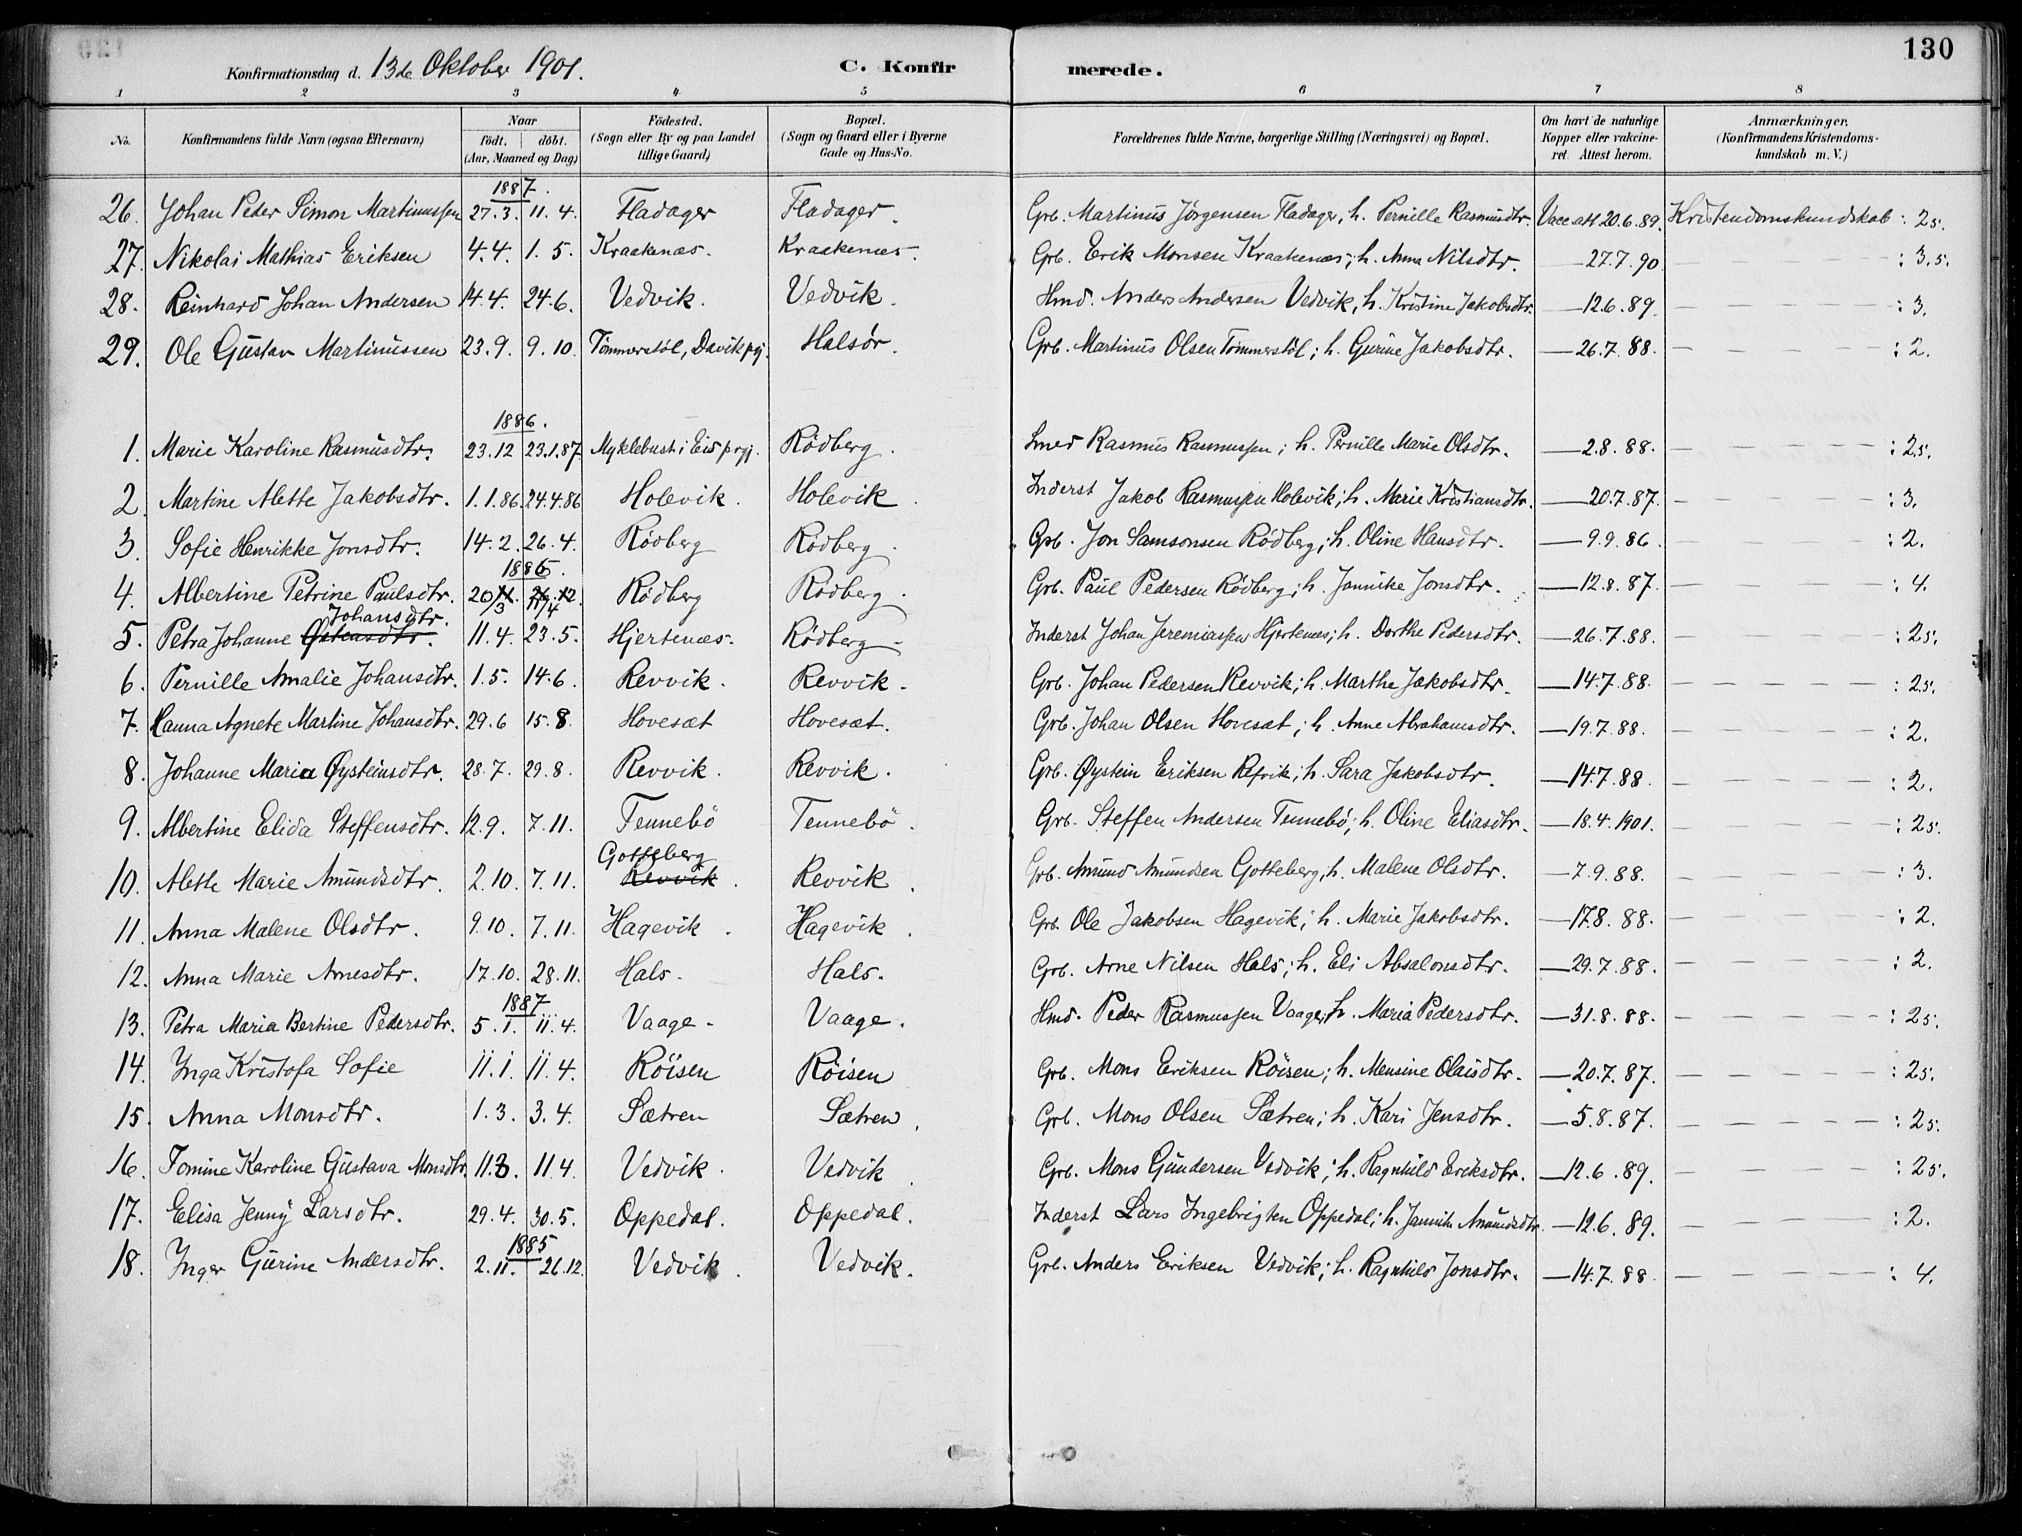 Konfirmationsdag d. 13de Oktober 1901. C. Konfirmerede. 130
1 2 3 4. 5 6 7 8
No. Konfirmandens fulde Navn (ogsaa Efternavn) Naar født. døbt. (Aar, Maaned og Dag) Fødested. (Sogn eller By og paa Landet tillige Gaard) Bopæl. (Sogn og Gaard eller i Byerne Gade og Hus-No. Forældrenes fulde Navne, borgerlige Stilling (Næringsvei) og Bopæl. Om havt de naturlige Kopper eller vakcineret. Attest herom. Anmærkninger, (Konfirmandens Kristendomskundskab m. V.)
1887.
26. Johan Peder Simon Martinussen 27.3. 11.4. Fladager Fladager. Grb. Martinus Jørgensen Fladager, h. Pernille Rasmusdtr. Vacc.att 20.6.89. Kristendomskundskab : 25.
27. Nikolai Mathias Eriksen 4.4. 1.5. Kraakenæs. Kraakenæs. Grb. Erik Monsen Kraakenæs; h. Anna Nilsdtr. — 27.7.90 — : 3.5.
28. Reinhard Johan Andersen 14.4. 24.6. Vedvik. Vedvik. Hmd. Anders Andersen Vedvik, h. Kristine Jakobsdtr. — 12.6.89. — : 3.
29. Ole Gustav Martinussen 23.9. 9.10. Tømmerstøl, Davik pgj. Halsør. Grb. Martinus Olsen Tømmerstøl; h. Gurine Jakobsdtr. — 26.7.88. — : 2.
1886.
1. Marie Karoline Rasmusdtr. 23.12 23.1.87 Myklebust i Eid prgj. Rødberg. Smed Rasmus Rasmussen; h. Pernille Marie Olsdtr. — 2.8.88. — : 25.
2. Martine Alette Jakobsdtr. 1.1.86. 24.4.86 Holevik. Holevik. Inderst Jakob Rasmussen Holevik; h. Marie Kristiansdtr. — 20.7.87. — : 3.
3. Sofie Henrikke Jonsdtr. 14.2. 26.4. Rødberg Rødberg. Grb. Jon Samsonsen Rødberg; h. Oline Hansdtr. — 9.9.86. — : 2.
1886.
4. Albertine Petrine Paulsdtr. 20/3 11/4 Rødberg Rødberg. Grb. Paul Pedersen Rødberg; h. Jannike Jonsdtr. — 12.8.87. — : 4.
Johansdtr.
5. Petra Johanne Østensdtr. 11.4. 23.5. Hjertenæs. Rødberg Inderst Johan Jeremiassen Hjertenes; h. Dorthe Pedersdtr. — 26.7.88. — : 25.
6. Pernille Amalie Johansdtr. 1.5. 14.6. Revvik. Revvik. Grb. Johan Pedersen Revvik; h. Marthe Jakobsdtr. — 14.7.88. — : 25.
7. Hanna Agnete Martine Johansdtr. 29.6 15.8. Hovesæt Hovesæt. Grb. Johan Olsen Hovesæt; h. Anne Abrahamsdtr. — 19.7.88. — : 2.
8. Johanne Maria Øysteinsdtr. 28.7. 29.8. Revvik. Revvik. Grb. Øystein Eriksen Refvik; h. Sara Jakobsdtr. — 14.7.88. — : 2.
9. Albertine Elida Steffensdtr. 12.9. 7.11. Tennebö Tennebö. Grb. Steffen Andersen Tennebö; h. Oline Eliasdtr. — 18.4.1901. — : 25.
Gotteberg
10. Alette Marie Amundsdtr. 2.10. 7.11. Revvik. Revvik. Grb. Amund Amundsen Gotteberg; h. Malene Olsdtr. — 7.9.88. — : 3.
11. Anna Malene Olsdtr. 9.10. 7.11. Hagevik. Hagevik. Grb. Ole Jakobsen Hagevik; h. Marie Jakobsdtr. — 17.8.88. — : 2.
12. Anna Marie Arnesdtr. 17.10. 28.11. Hals. Hals. Grb. Arne Nilsen Hals; h. Eli Absalonsdtr. — 29.7.88. — : 2.
1887
13. Petra Maria Bertine Pedersdtr. 5.1. 11.4. Vaage. Vaage. Hmd. Peder Rasmussen Vaage, h. Maria Pedersdtr. — 31.8.88. — : 25.
14. Inga Kristofa Sofie 11.1. 11.4. Röisen Röisen Grb. Mons Eriksen Röisen; h. Mensine Olaisdtr. — 20.7.87. — : 25.
15. Anna Monsdtr. 1.3. 3.4. Sætren Sætren. Grb. Mons Olsen Sætren; h. Kari Jensdtr. — 5.8.87. — : 25.
16. Tomine Karoline Gustava Monsdtr. 11.3. 11.4. Vedvik. Vedvik. Grb. Mons Gundersen Vedvik; h. Ragnhild Eriksdtr. — 12.6.89. — : 25.
17. Elisa Jenny Larsdtr. 29.4. 30.5. Oppedal. Oppedal. Inderst Lars Ingebrigten Oppedal; h. Jannike Amundsdtr. — 12.6.89. — : 2.
1885
18. Inger Gurine Andersdtr. 2.11. 26.12. Vedvik. Vedvik. Grb. Anders Eriksen Vedvik; h. Ragnhild Jonsdtr. — 14.7.88. — : 4.